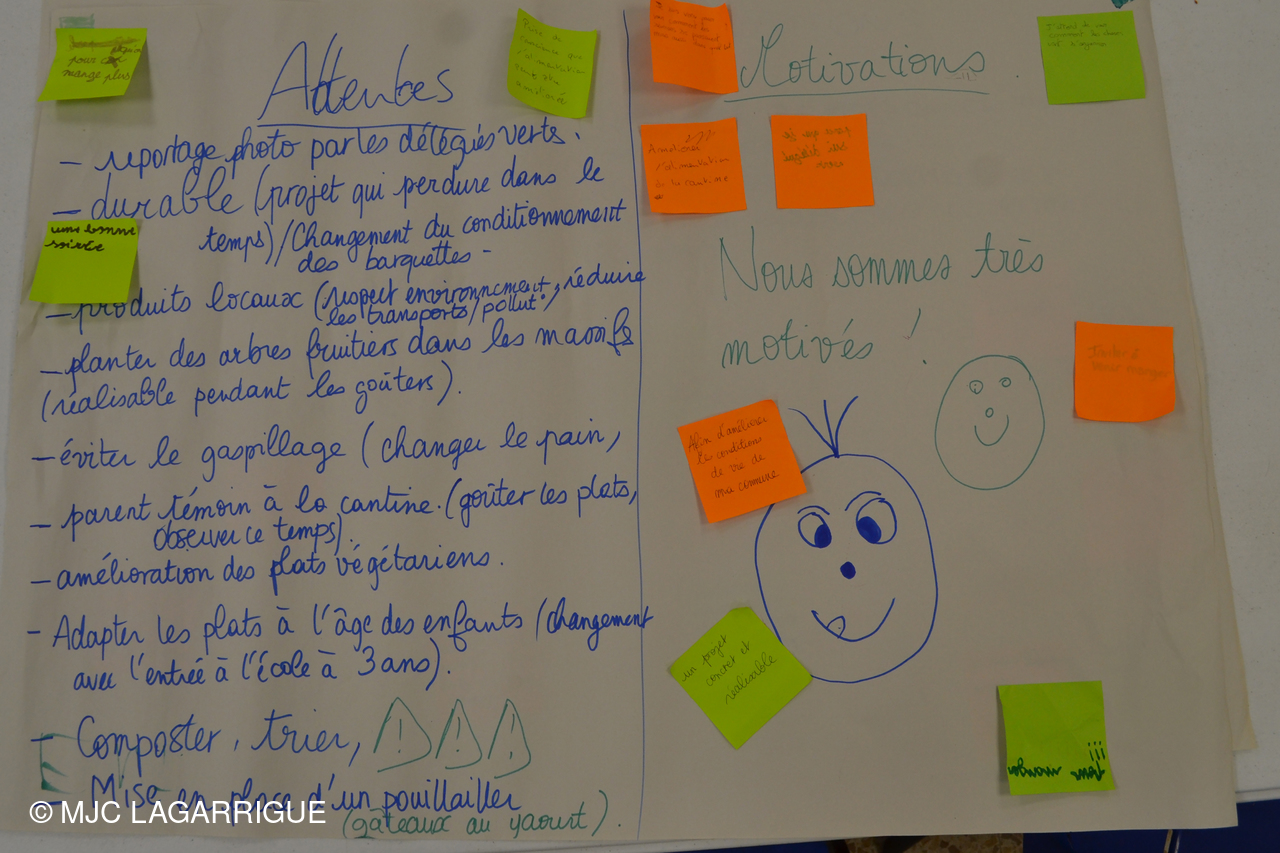 Attentes
– reportage photo par les délégiés verts.
– durable (projet qui perdure dans le
temps)/Changement du conditionnement
des barquettes –
– produits locaux (respect environnement, réduire
les transports/pollut°)
– planter des arbres fruitiers dans les massifs
(réalisable pendant les goûters).
– éviter le gaspillage (changer le pain,
– parent témoin à la cantine. (goûter les plats,
observer ce temps).
– amélioration des plats végétariens.
– Adapter les plats à l'âge des enfants (changement
avec l'entrée à l'école à 3 ans).
– Composter, trier,
– Mise en place d'un pouillailler
(gâteaux au yaourt).
pour
mange plus
Prise de
conscience que
l'alimentation
peut être
améliorée
une bonne
soirée
Motivations
Améliorer
l'alimentation
de la cantine
Nous sommes très
motivés !
Afin d'améliorer
les conditions
de vie de
ma commune
un projet
concret et
réalisable
bien manger
!!!
© MJC LAGARRIGUE